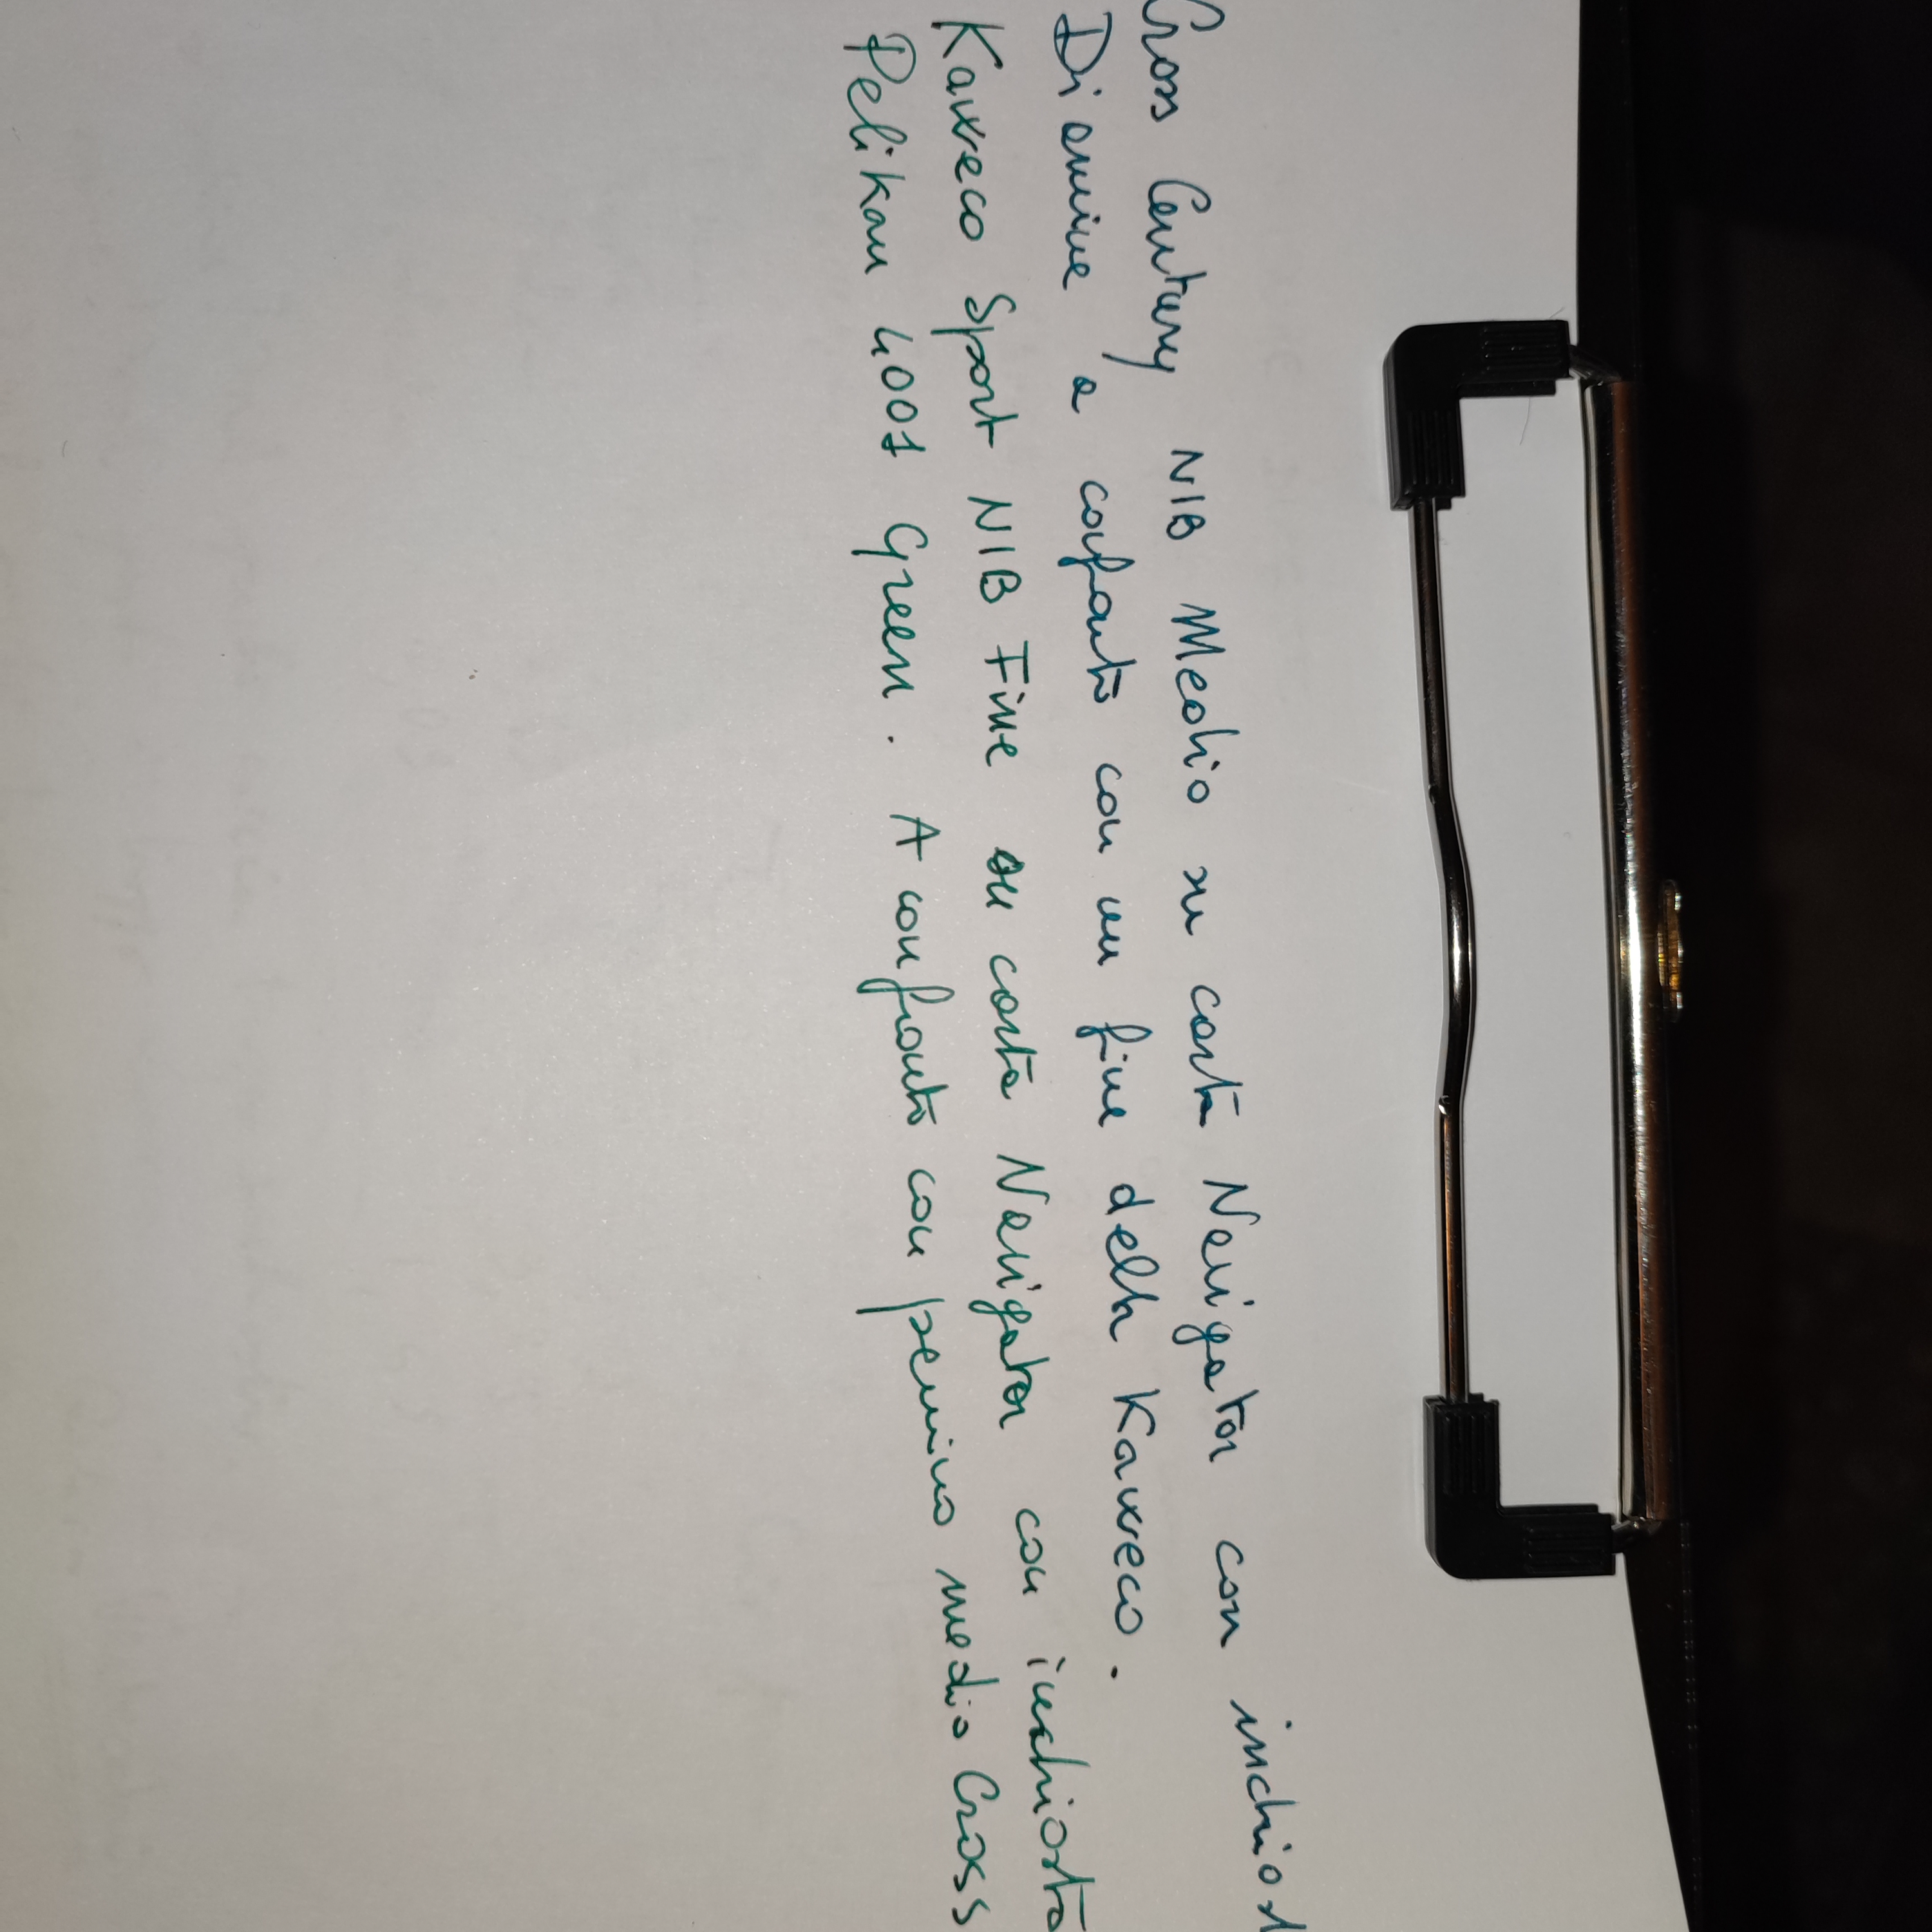 Cross Century NIB Medio su carta Navigator con inchiost
Diamine a confronto con un fine della Kaweco.
Kaweco Sport NIB Fine su carta Navigator con inchiostro
Pelikan 4001 Green. A confronto con pennino medio Cross